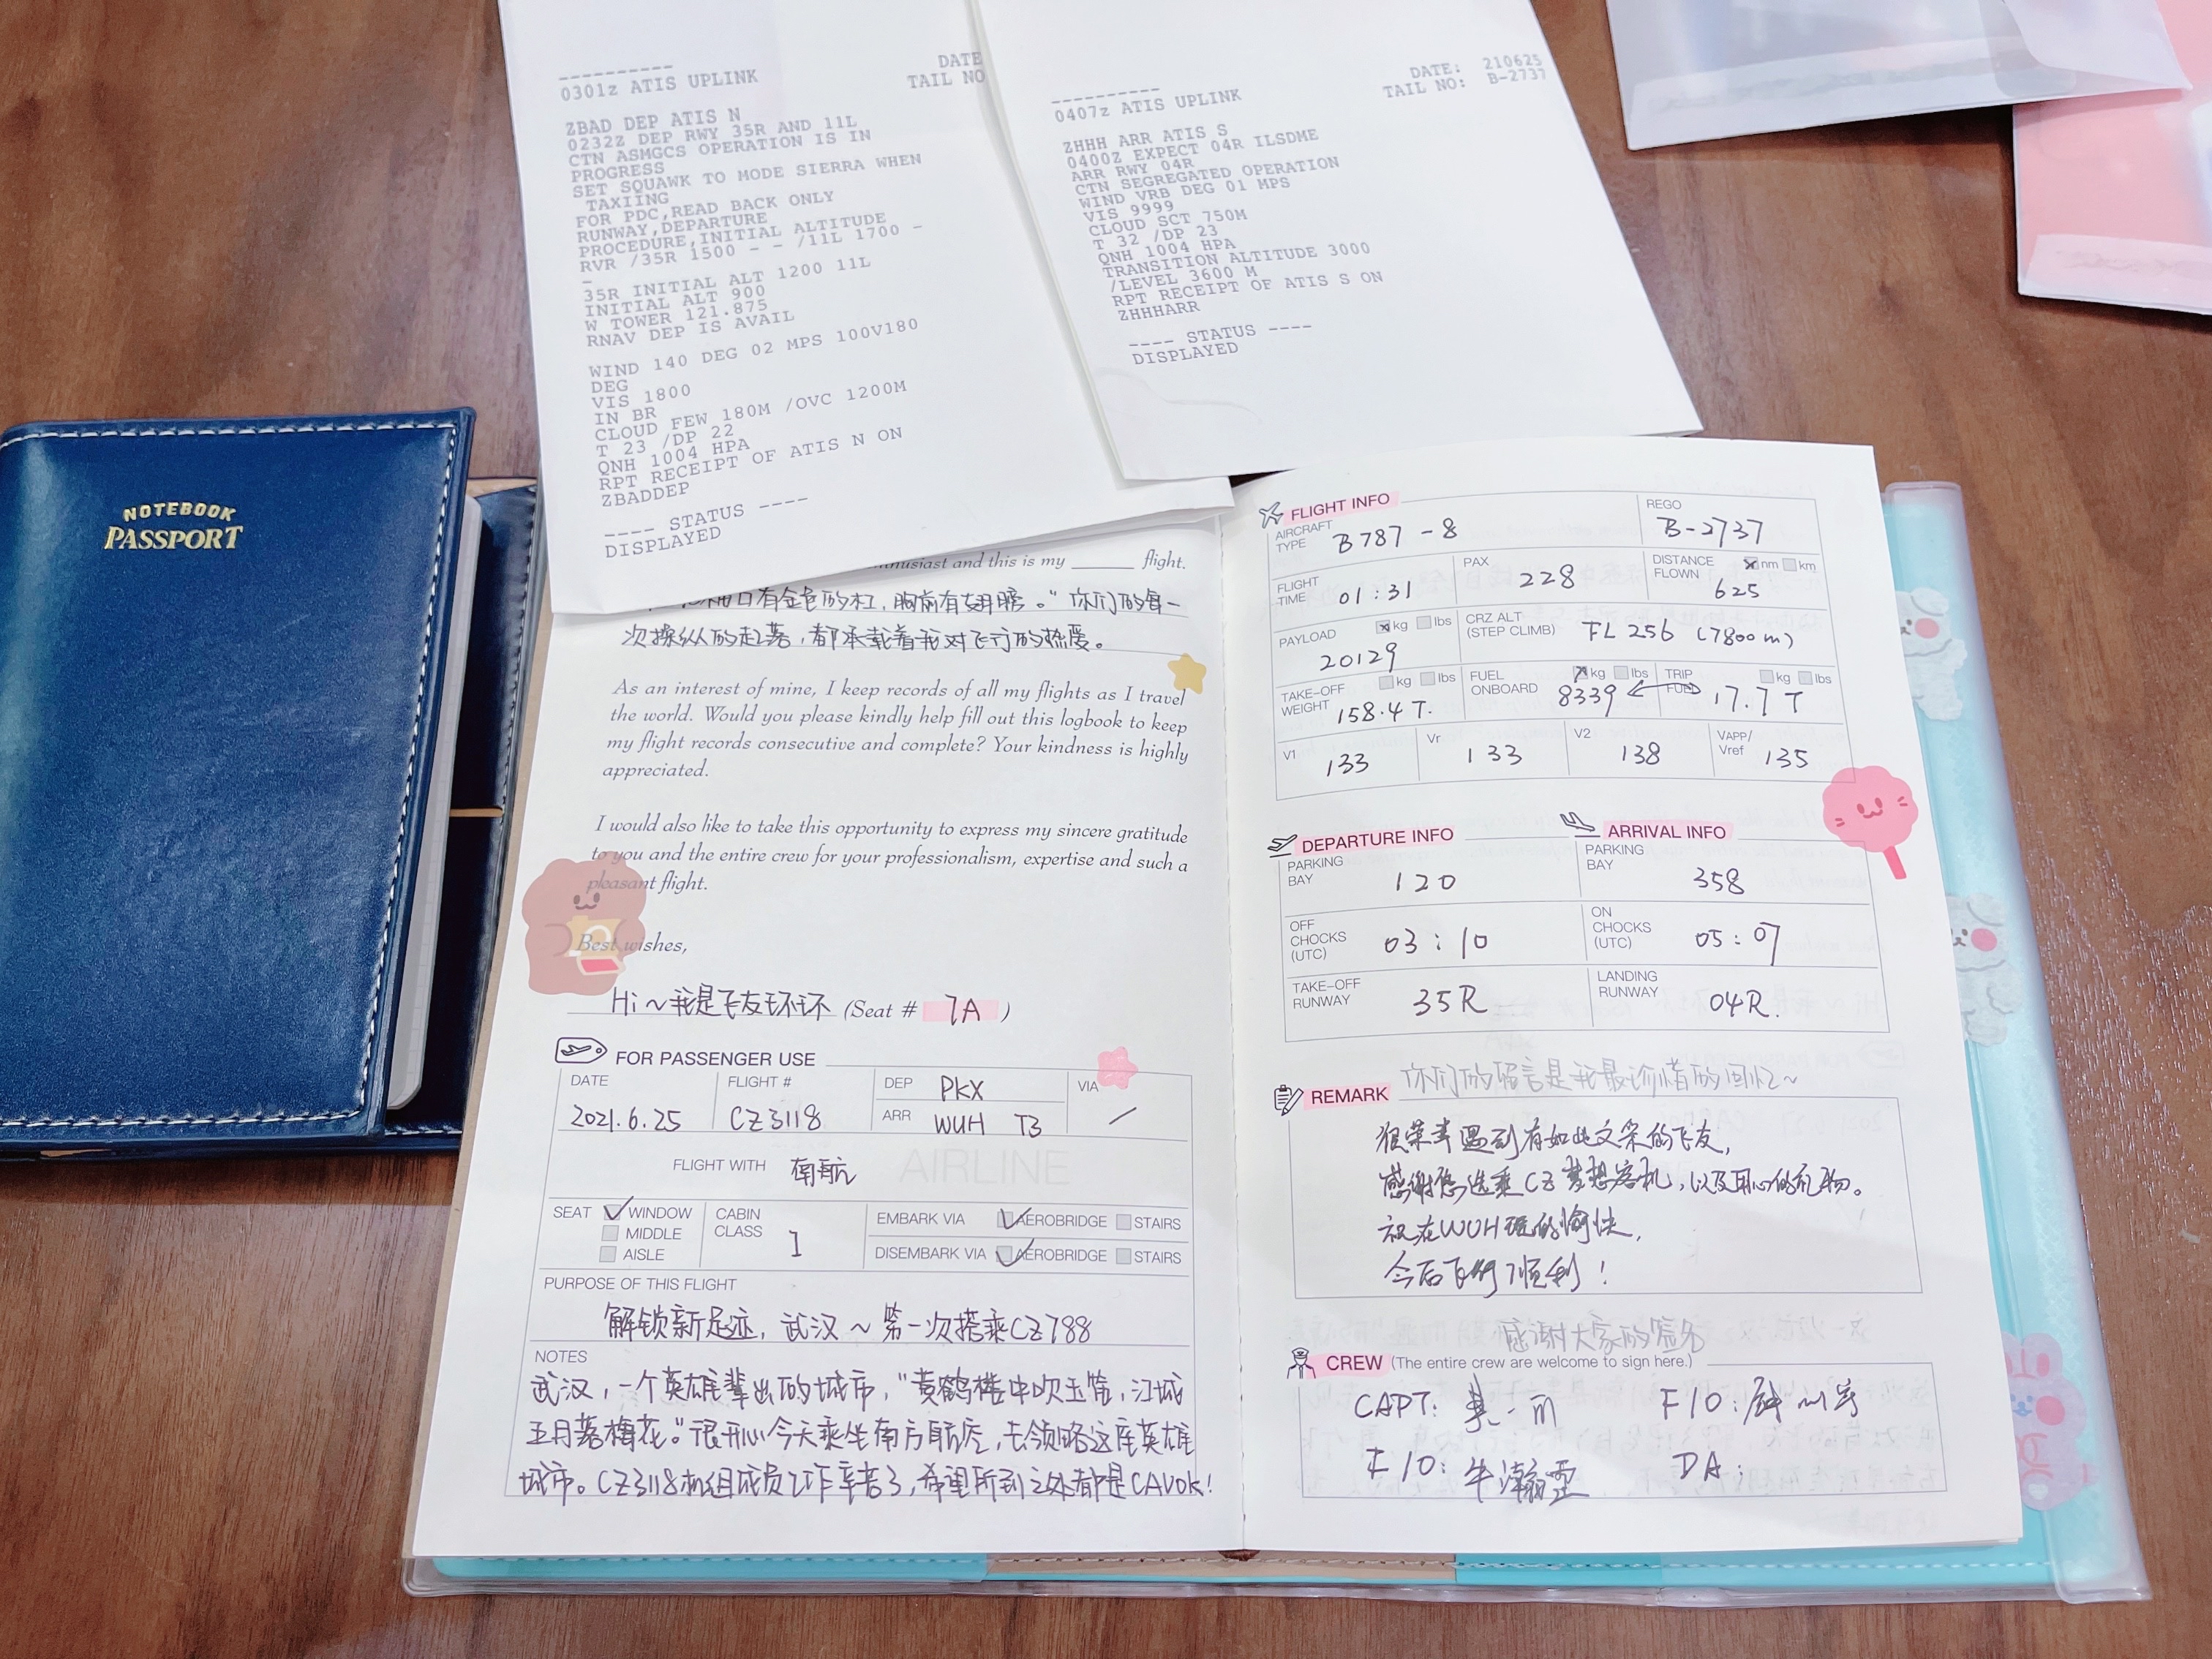 ----------
0301z ATIS UPLINK
DATE
TAIL NO
ZBAD DEP ATIS N
0232Z DEP RWY 35R AND 11L
CTN ASMGCS OPERATION IS IN
PROGRESS
SET SQUAWK TO MODE SIERRA WHEN
TAXIING
FOR PDC,READ BACK ONLY
RUNWAY,DEPARTURE
PROCEDURE,INITIAL ALTITUDE
RVR /35R 1500 - - /11L 1700 -
-
35R INITIAL ALT 1200 11L
INITIAL ALT 900
W TOWER 121.875
RNAV DEP IS AVAIL
WIND 140 DEG 02 MPS 100V180
DEG
VIS 1800
IN BR
CLOUD FEW 180M /OVC 1200M
T 23 /DP 22
QNH 1004 HPA
RPT RECEIPT OF ATIS N ON
ZBADDEP
---- STATUS ----
DISPLAYED
----------
0407z ATIS UPLINK
DATE: 210625
TAIL NO: B-2737
ZHHH ARR ATIS S
0400Z EXPECT 04R ILSDME
ARR RWY 04R
CTN SEGREGATED OPERATION
WIND VRB DEG 01 MPS
VIS 9999
CLOUD SCT 750M
T 32 /DP 23
QNH 1004 HPA
TRANSITION ALTITUDE 3000
/LEVEL 3600 M
RPT RECEIPT OF ATIS S ON
ZHHHARR
---- STATUS ----
DISPLAYED
NOTEBOOK
PASSPORT
and this is my ______ flight.
有金色的杠,胸前有翅膀。"你们的每一
次操纵的起落,都承载着我对飞行的热爱。
As an interest of mine, I keep records of all my flights as I travel
the world. Would you please kindly help fill out this logbook to keep
my flight records consecutive and complete? Your kindness is highly
appreciated.
I would also like to take this opportunity to express my sincere gratitude
to you and the entire crew for your professionalism, expertise and such a
pleasant flight.
Best wishes,
Hi~我是飞友环环 (Seat # 7A )
FOR PASSENGER USE
DATE 2021.6.25
FLIGHT # CZ3118
DEP PKX
ARR WUH T3
VIA /
FLIGHT WITH 南航 AIRLINE
SEAT WINDOW
MIDDLE
AISLE
CABIN CLASS I
EMBARK VIA AEROBRIDGE STAIRS
DISEMBARK VIA AEROBRIDGE STAIRS
PURPOSE OF THIS FLIGHT
解锁新足迹,武汉~第一次搭乘CZ788
NOTES
武汉,一个英雄辈出的城市,"黄鹤楼中吹玉笛,江城
五月落梅花。"很开心今天乘坐南方航空,去领略这座英雄
城市。CZ3118机组成员工作辛苦了,希望所到之处都是CAVOK!
FLIGHT INFO
AIRCRAFT TYPE B787-8
REGO B-2737
FLIGHT TIME 01:31
PAX 228
DISTANCE FLOWN nm km 625
PAYLOAD kg lbs 20129
CRZ ALT (STEP CLIMB) FL 256 (7800m)
TAKE-OFF WEIGHT kg lbs 158.4 T.
FUEL ONBOARD kg lbs 8339
TRIP FUEL kg lbs 17.7 T
V1 133
Vr 133
V2 138
VAPP/Vref 135
DEPARTURE INFO
PARKING BAY 120
OFF CHOCKS (UTC) 03:10
TAKE-OFF RUNWAY 35R
ARRIVAL INFO
PARKING BAY 358
ON CHOCKS (UTC) 05:07
LANDING RUNWAY 04R.
你们的留言是我最珍惜的回忆~
REMARK
很荣幸遇到有如此文采的飞友,
感谢您选乘CZ梦想客机,以及用心的礼物。
祝在WUH玩的愉快,
今后飞行顺利!
感谢大家的签名
CREW (The entire crew are welcome to sign here.)
CAPT:
F/O:
F/O: 牛瀚雲
DA: